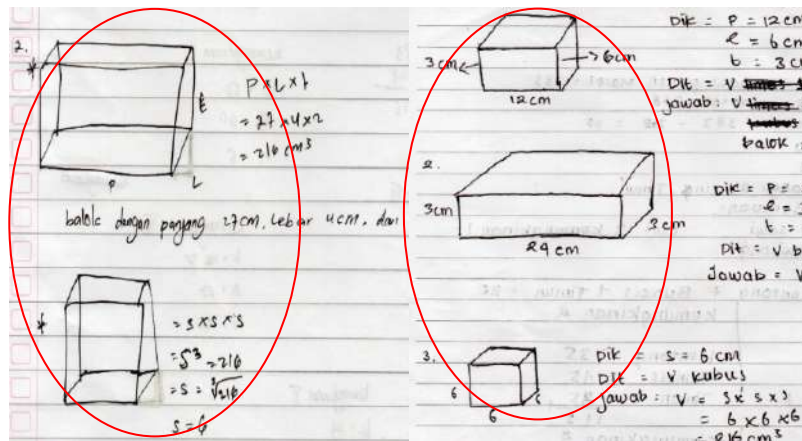 2.
t
P x L x t
= 27 x 4 x 2
= 216 cm³
P
L
balok dengan panjang 27 cm, lebar 4 cm, dan
= s x s x s
= s³ = 216
= s = ∛216
s = 6
3 cm
6 cm
12 cm
Dik = P = 12 cm
l = 6 cm
t = 3 cm
Dit = V
Jawab = V
balok
2.
3 cm
3 cm
24 cm
Dik = P =
l =
t =
Dit = V b
Jawab = V
3.
6
6
Dik = s = 6 cm
Dit = V kubus
Jawab = V = s x s x s
= 6 x 6 x 6
= 216 cm³